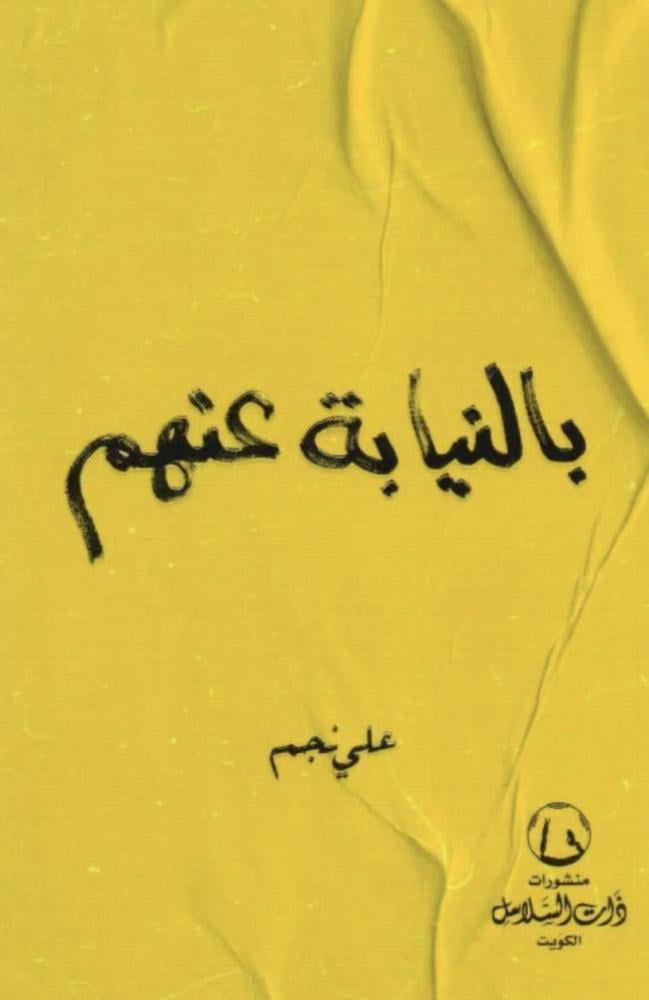 بالنيابة عنهم
علي نجم
منشورات
ذَات السَّلاسِل
الكويت